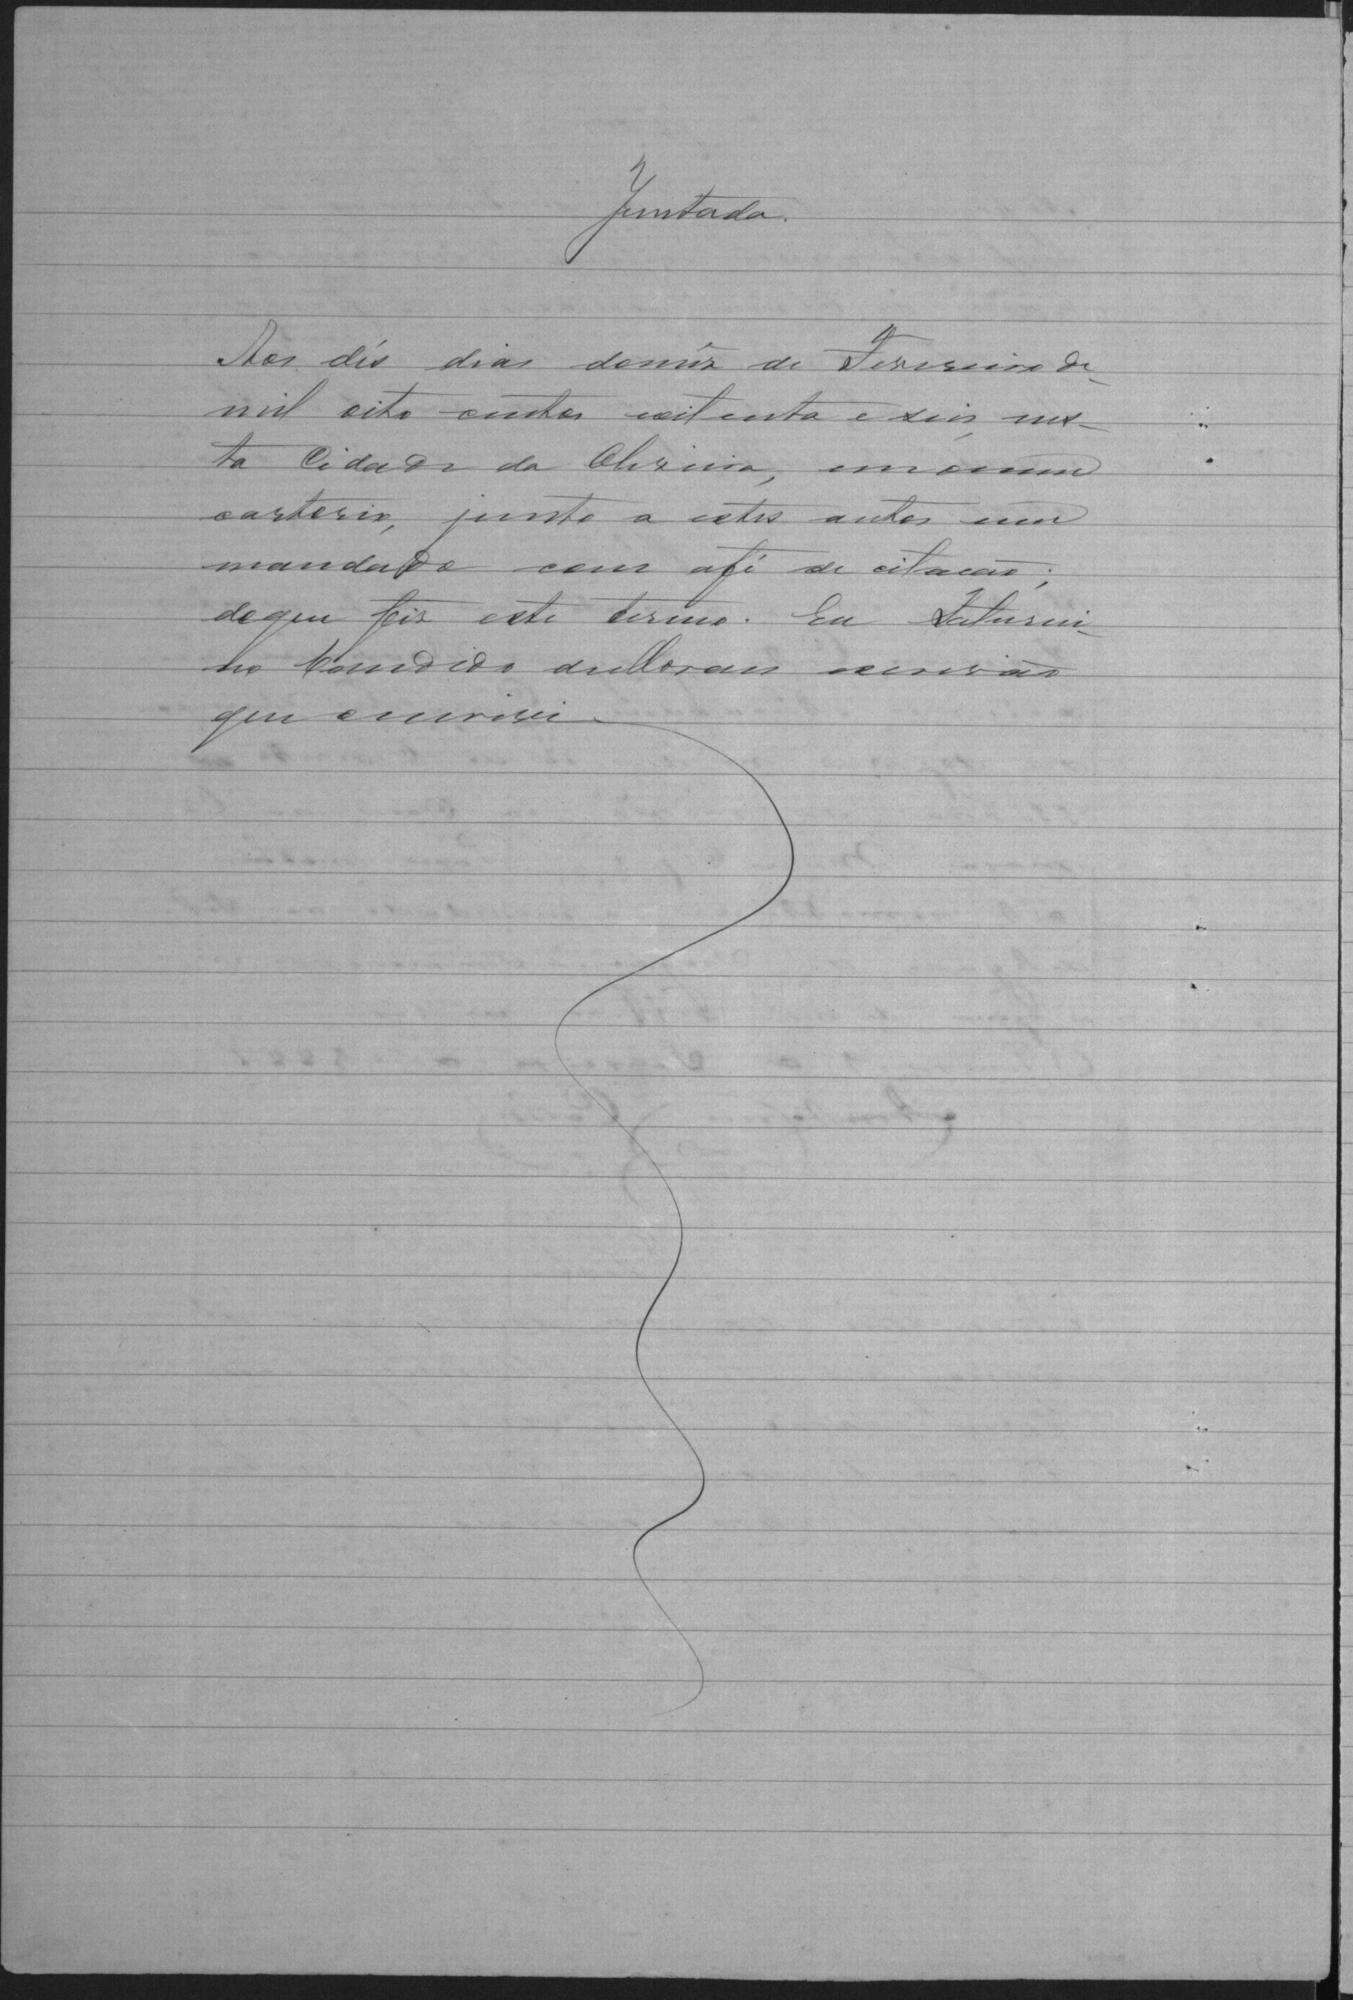 Juntada.
Aos dés dias domêz de Fevereiro de
mil oito centos eoitenta e seis, nes-
ta Cidade da Oliveira, emomeu
cartorio, junto a estes autos um
mandado com afé de citacão;
doque fiz este termo. Eu Saturni-
no Candido deMoraes escrivão
que escrivi